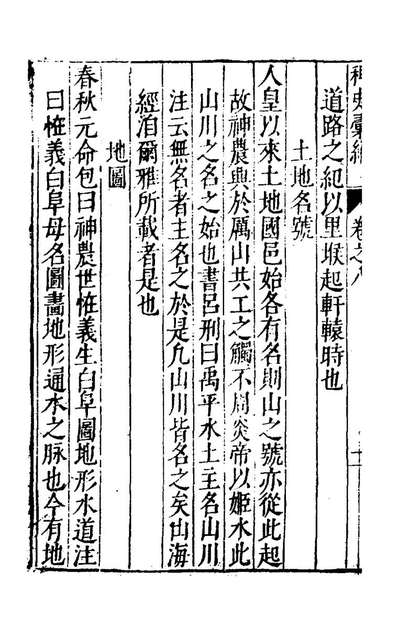 稗史彙編 卷之八
道路之紀以里堠起軒轅時也
土地名號
人皇以來土地國邑始各有名則山之號亦從此起
故神農興於厲山共工之觸不周炎帝以姬水此
山川之名之始也書呂刑曰禹平水土主名山川
注云無名者主名之於是凡山川皆名之矣山海
經洎爾雅所載者是也
地圖
春秋元命包曰神農世恠義生白阜圖地形水道注
曰恠義白阜母名圖畫地形通水之脉也今有地